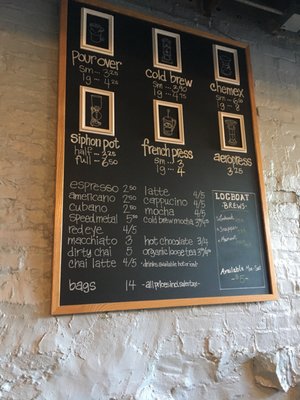 pour over
sm... 3.25
lg ... 4.25
cold brew
sm... 3.50
lg ... 4.75
chemex
sm... 6
lg ... 8
siphon pot
half... 3.25
full... 6.50
french press
sm ... 3
lg ... 4
aeropress
3.25
espresso 2.50
americano 2.50
cubano 2.50
speed metal 5.50
red eye 4/5
macchiato 3
dirty chai 5
chai latte 4/5
bags 14
latte 4/5
cappucino 4/5
mocha 4/5
cold brew mocha
hot chocolate 3/4
organic loose tea
*drinks available hot or iced
- all prices incl. sales tax -
LOGBOAT
BREWS
Snapper
Mamoot
Available